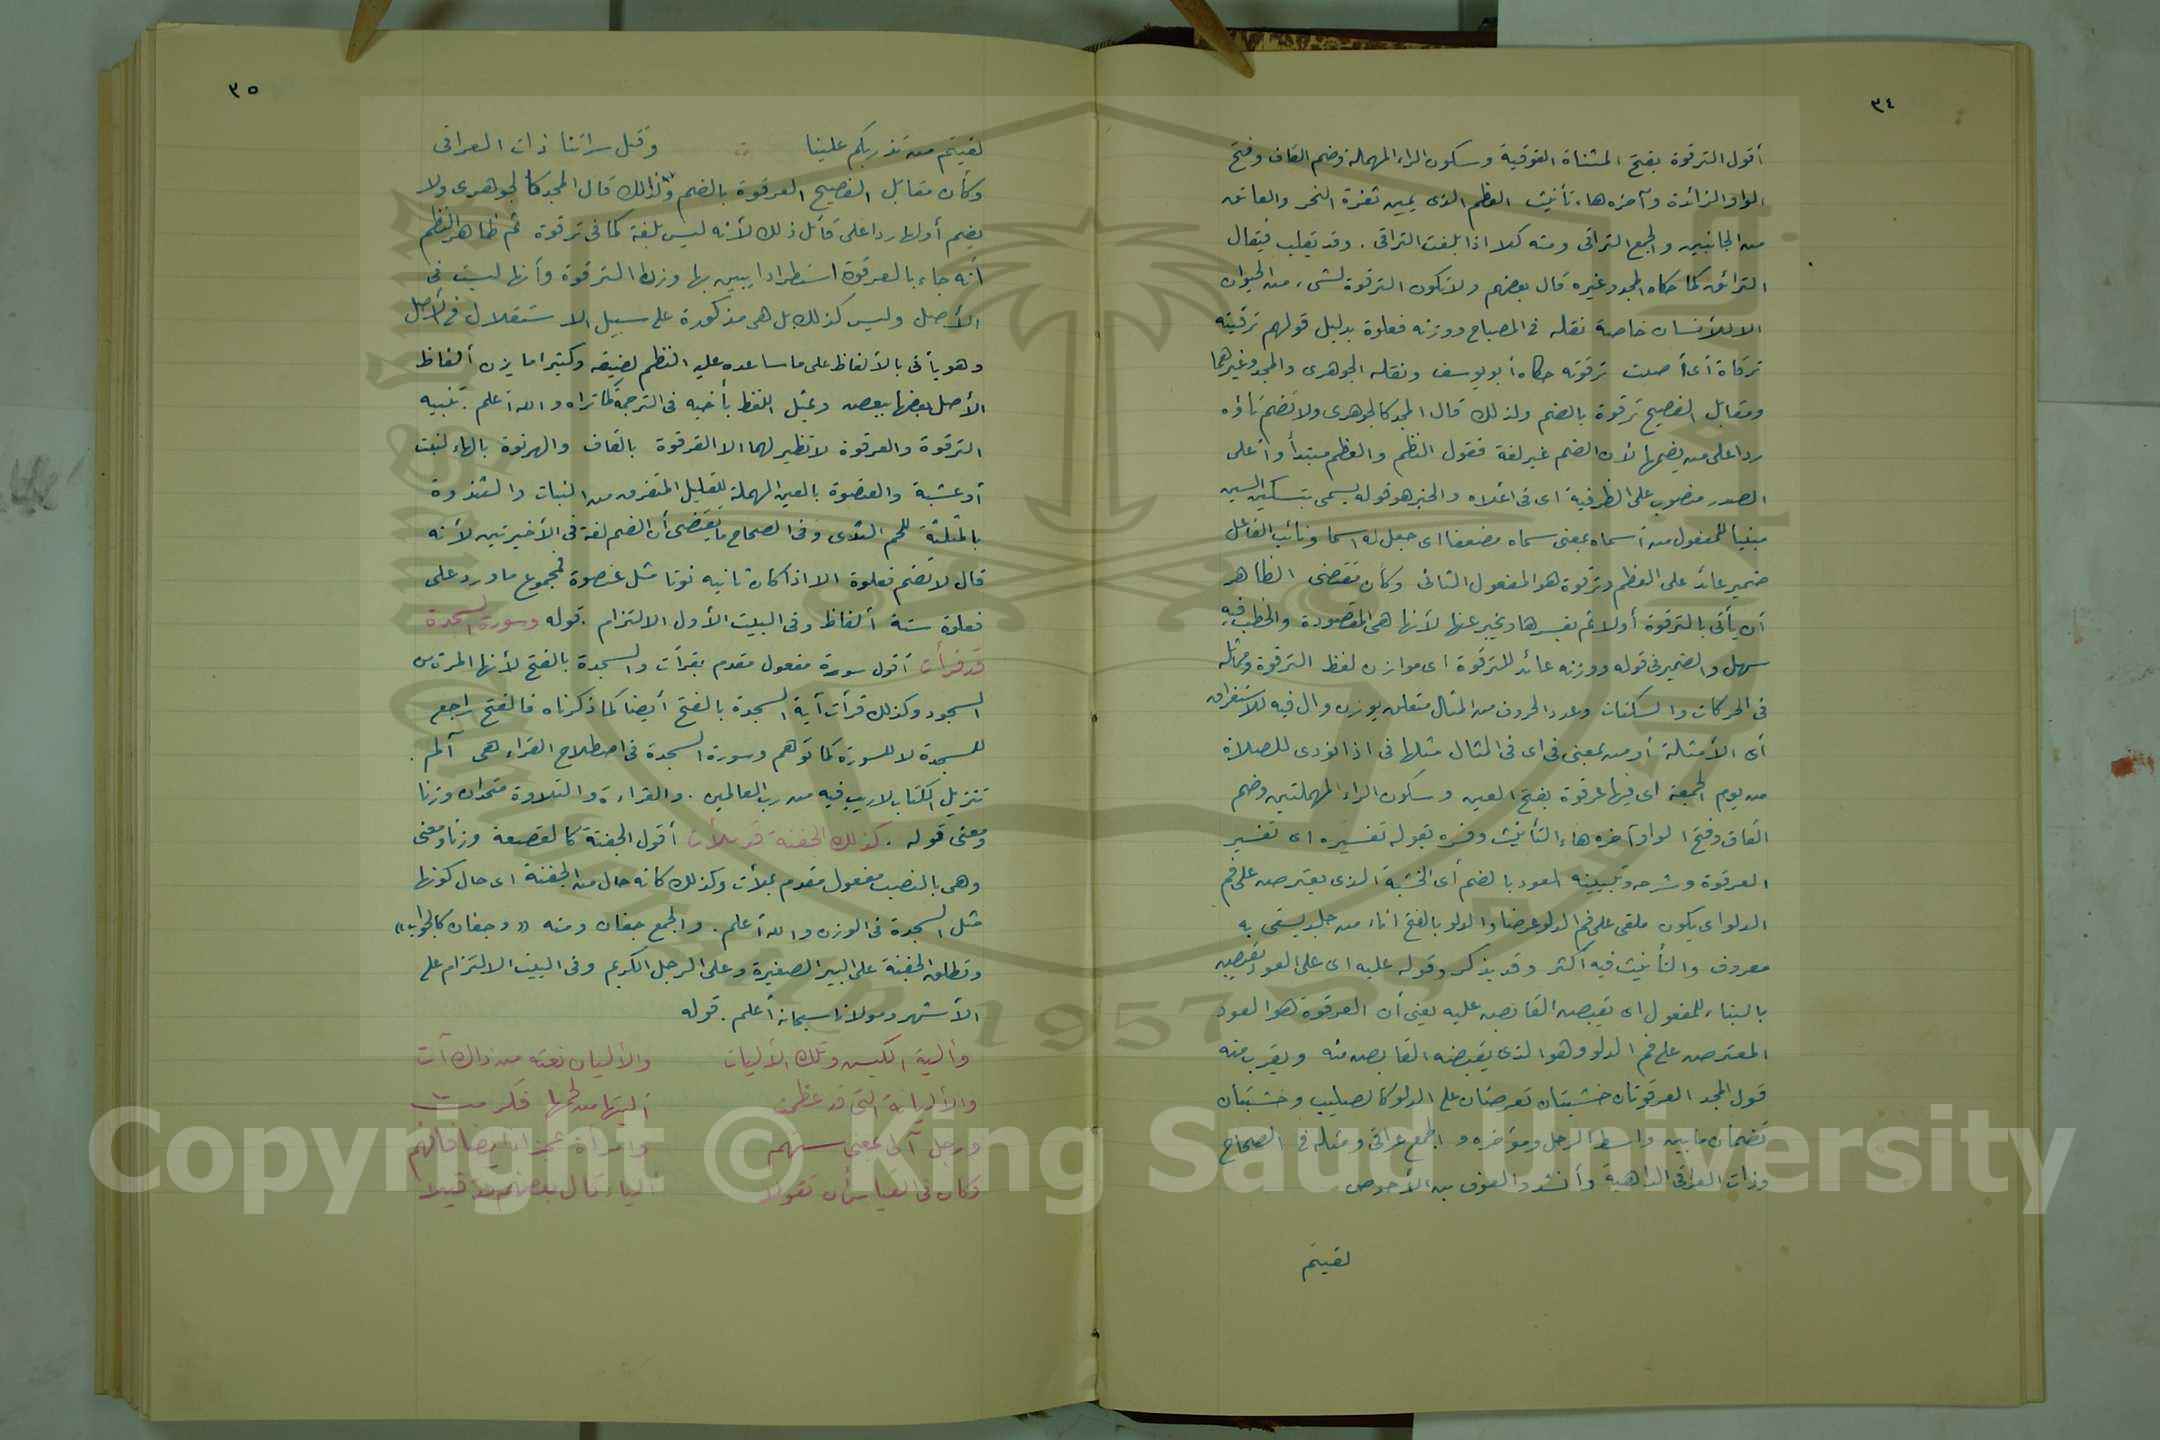 ٣٤
أقول الترقوة بفتح المثناة الفوقية وسكون الراء المهملة وضم القاف وفتح
الواو الزائدة وآخره هاء تأنيث العظم الذي بين ثغرة النحر والعاتق
من الجانبين والجمع التراقي ومنه كلا اذا بلغت التراقي . وقد تقلب فيقال
الترائق كما حكاه المجد وغيره قال بعضهم ولا تكون الترقوة لشىء من الحيوان
الا للأنسان خاصة نقله في المصباح ووزنه فعلوة بدليل قولهم ترقيته
ترقاة أى أصبت ترقوته حكاه أبو يوسف ونقله الجوهرى والمجد وغيرهما
ومقابل الفصيح ترقوة بالضم ولذلك قال المجد كالجوهرى ولا تضم تاؤه
ردا على من يضمها لأن الضم غير لغة فقول النظم والعظم مبتدأ وأعلى
الصدر منصوب على الظرفية اى فى اعلاه والخبر هو قوله يسمى بتسكين السين
مبنيا للمفعول من أسماه بمعنى سماه مضعفا اى جعل له اسما ونائب الفاعل
ضمير عائد على العظم وترقوة هو المفعول الثانى وكأن مقتضى الظاهر
أن يأتى بالترقوة أولا ثم يفسرها ويخبر عنها لأنها هى المقصودة والخطب فيه
سهل والضمير فى قوله ووزنه عائد للترقوة اى موازن لفظ الترقوة ومماثله
فى الحركات والسكنات وعدد الحروف من المثال متعلق بوزن وال فيه للاستغراق
أى الأمثلة أو من بمعنى فى اى فى المثال مثلها فى اذا نودى للصلاة
من يوم الجمعة اى فيها عرقوة بفتح العين وسكون الراء المهملتين وضم
القاف وفتح الواو آخره هاء التأنيث وفسره بقوله تفسيره اى تفسير
العرقوة وشرحه وتبيينه العود بالضم أى الخشبة الذى يعترض على فم
الدلو اى يكون ملقى على فم الدلو عرضا والدلو بالفتح اناء من جلد يستقى به
معروف والتأنيث فيه أكثر وقد يذكر وقوله عليه اى على العود يقبض
بالبناء للمفعول اى يقبض القابض عليه يعنى أن العرقوة هو العود
المعترض على فم الدلو وهو الذى يقبضه القابض منه ويقرب منه
قول المجد العرقوتان خشبتان تعرضان على الدلو كالصليب وخشبتان
تضمان ما بين واسط الرحل ومؤخره والجمع عراقي ومثله فى الصحاح
وذات العراقي الداهية وأنشد والعوف بن الأحوص
لقيتم
٣٥
لقيتم من تدربكم علينا وقتل سراتنا ذات العراقى
وكأن مقابل الفصيح العرقوة بالضم ولذلك قال المجد كالجوهرى ولا
يضم أولها ردا على قائل ذلك لأنه ليس بلغة كما فى ترقوة ثم ظاهر النظم
أنه جاء بالعرقوة استطرادا يبين بها وزن الترقوة وأنها ليست فى
الأصل وليس كذلك بل هى مذكورة على سبيل الاستقلال فى الأصل
وهو يأتى بالألفاظ على ما ساعده عليه النظم لضيقه وكثيرا ما يزن ألفاظ
الأصل بعضها ببعض ويمثل اللفظ بأخيه فى الترجمة كما تراه والله أعلم . تنبيه
الترقوة والعرقوة لا نظير لهما الا القرقوة بالقاف والهرنوة بالهاء لنبت
أو عشبة والعنصوة بالعين المهملة للقليل المتفرق من النبات والثندوة
بالمثلثة للحم الثدى وفى الصحاح ما يقتضى أن الضم لغة فى الأخيرتين لأنه
قال لا تضم فعلوة الا اذا كان ثانيه نونا مثل عنصوة فمجموع ما ورد على
فعلوة ستة ألفاظ وفى البيت الأول الالتزام . قوله وسورة السجدة
قد قرأت أقول سورة مفعول مقدم بقرأت والسجدة بالفتح لأنها المرة من
السجود وكذلك قرأت آية السجدة بالفتح أيضا كما ذكرناه فالفتح راجع
للسجدة لا للسورة كما توهم وسورة السجدة فى اصطلاح القراء هى ألم .
تنزيل الكتاب لا ريب فيه من رب العالمين . والقراءة والتلاوة متحدان وزنا
ومعنى قوله . كذلك الجفنة قد ملأت أقول الجفنة كالقصعة وزنا ومعنى
وهى بالنصب مفعول مقدم بملأت وكذلك كأنه حال من الجفنة اى حال كونها
مثل السجدة فى الوزن والله أعلم . والجمع جفان ومنه «وجفان كالجواب»
وتطلق الجفنة على البير الصغيرة وعلى الرجل الكريم وفى البيت الالتزام على
الأشهر ومولانا سبحانه أعلم . قوله
وألية الكبش وتلك الأليات والأليان نعته من ذاك آت
والأليانة التى قد عظمت أليتها من لحمها فكرمت
ورجل آلى بمعنى ستهم وامرأة عجزاء أيضا فافهم
وكان فى القياس أن تقولا ألياء قال بعضهم قد قيلا
Copyright © King Saud University
1957